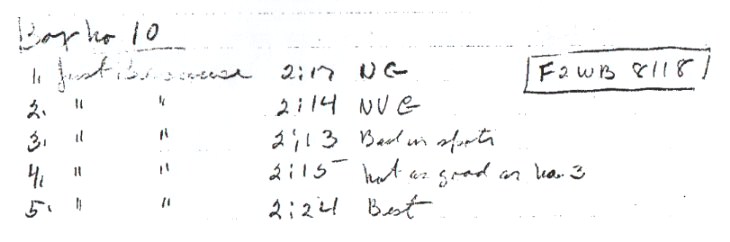 Box no 10
1. Just Because 2:17 NG F2WB 8118
2. " " 2:14 NVG
3. " " 2:13 Bad in spots
4. " " 2:15 not as good as no. 3
5. " " 2:24 Best